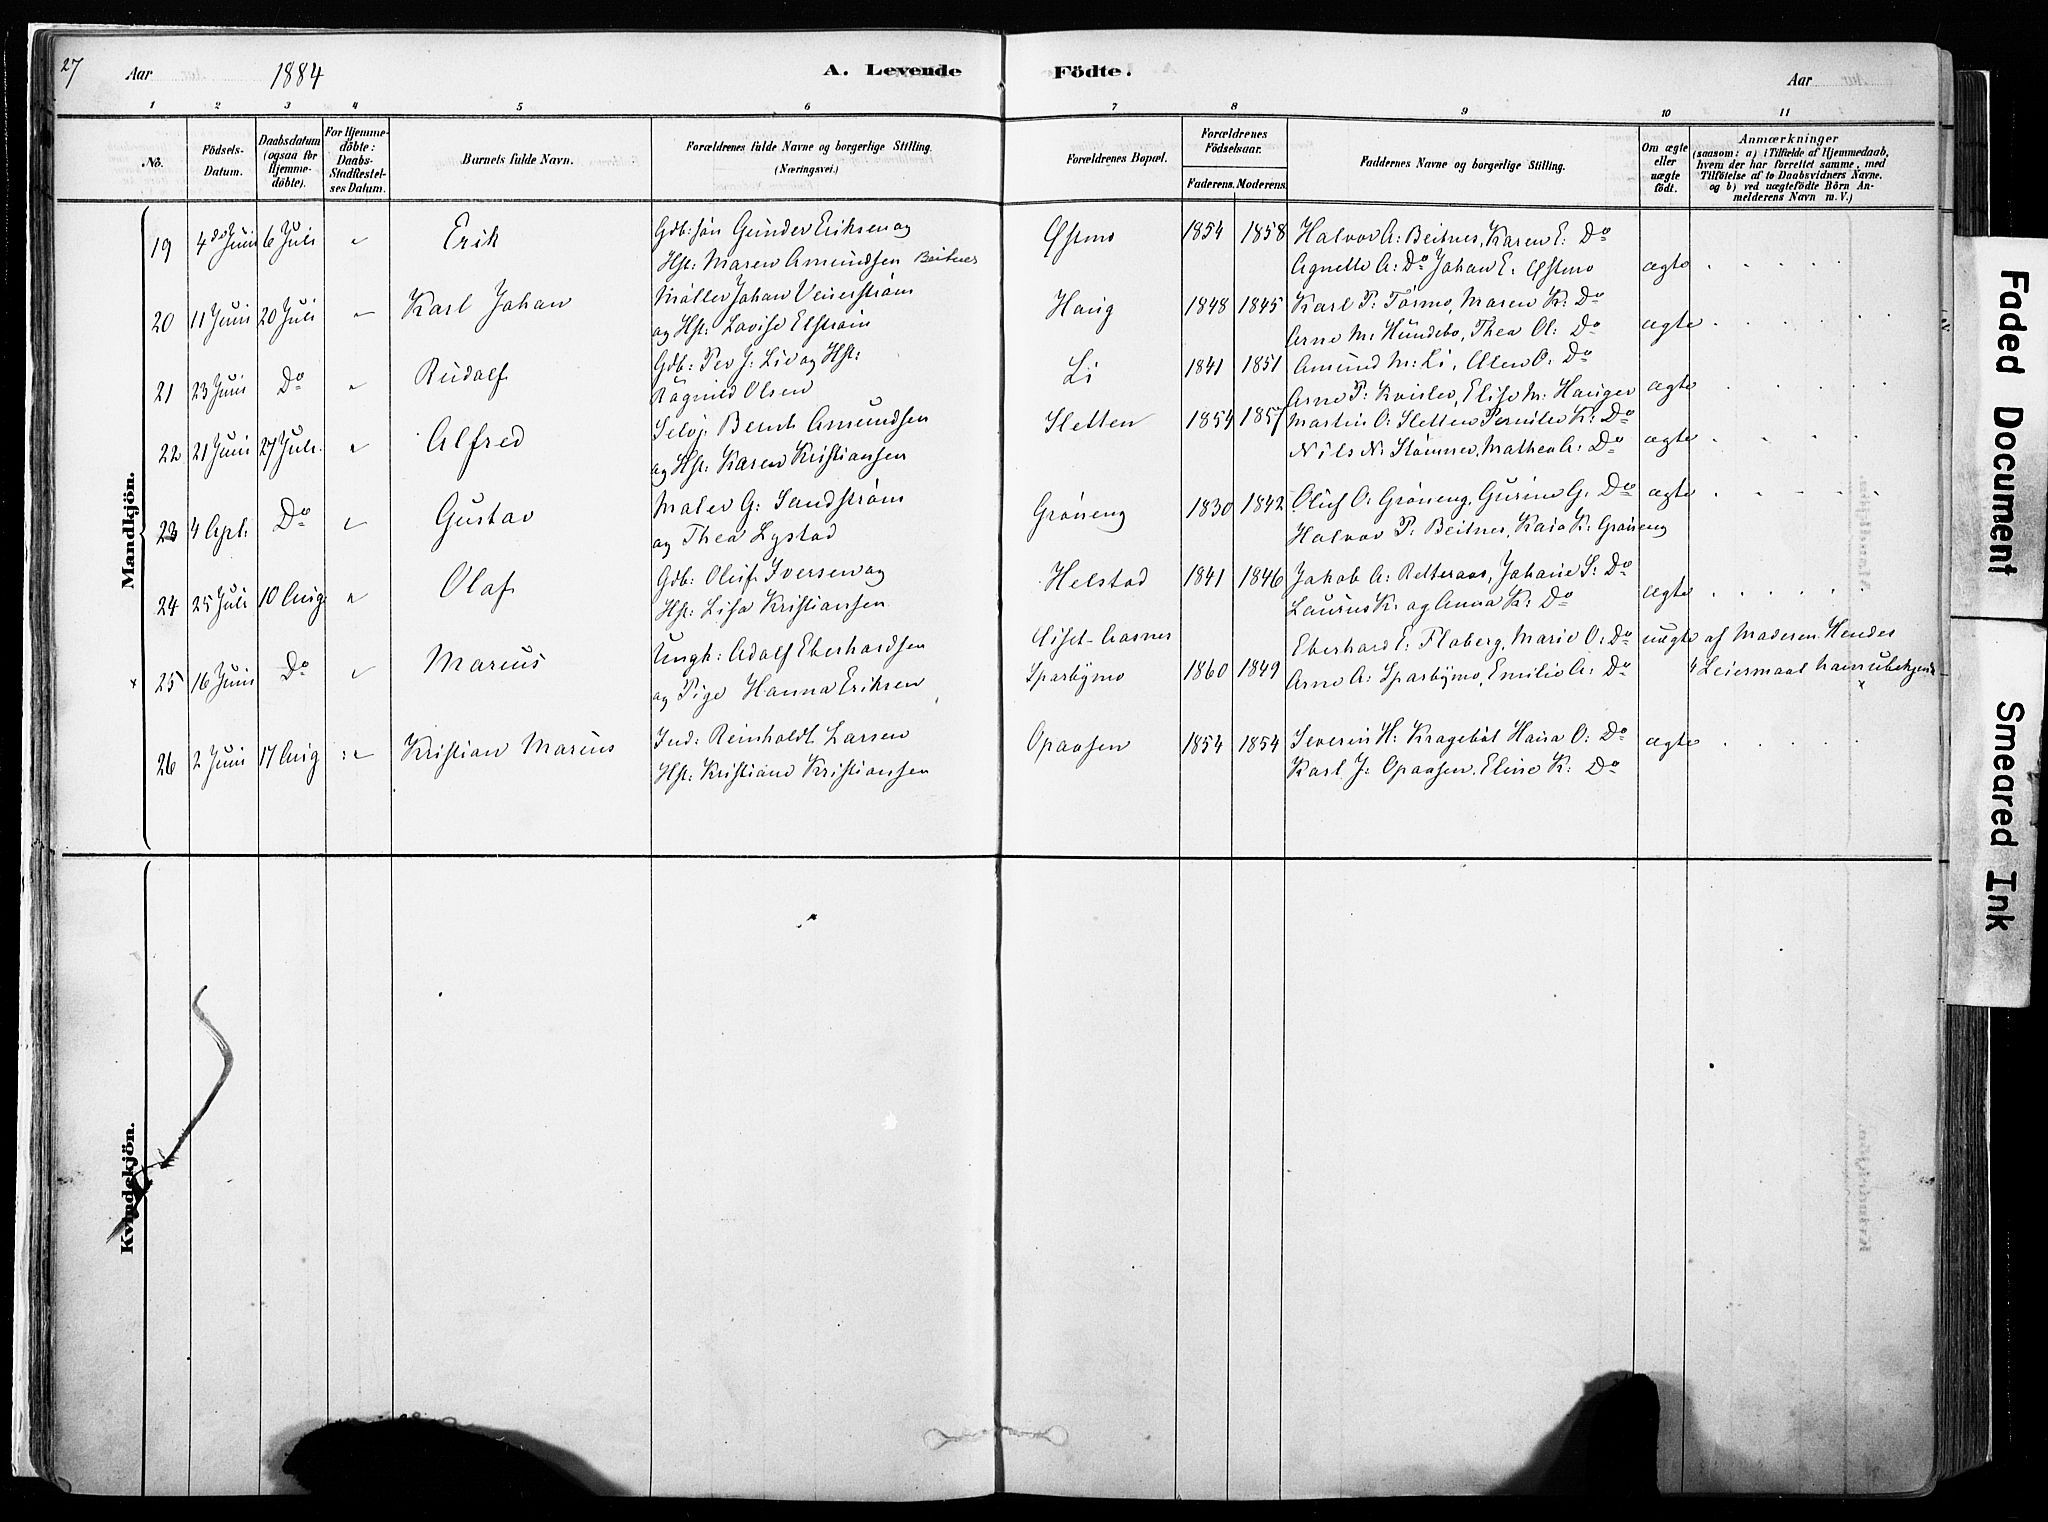 27
Aar 1884
A. Levende Födte.
Aar
1 2 3 4 5 6 7 8 9 10 11
No.
Födsels-Datum.
Daabsdatum (ogsaa for Hjemme-döbte).
For Hjemme-döbte: Daabs-Stadfæstel-ses Datum.
Barnets fulde Navn.
Forældrenes fulde Navne og borgerlige Stilling. (Næringsvei.)
Forældrenes Bopæl.
Forældrenes Födselsaar.
Faderens. Moderens.
Faddernes Navne og borgerlige Stilling.
Om ægte eller uægte födt.
Anmærkninger
(saasom: a) i Tilfælde af Hjemmedaab,
hvem der har forrettet samme, med
Tilföielse af to Daabsvidners Navne.
og b) ved uægtefödte Börn An-
melderens Navn m. V.)
Mandkjön.
19 4de Juni 6 Juli " Erik Gdb: søn Gunder Eriksen og Østmo 1854 1858 Halvor A: Beitnes, Karen E: Do
Hst: Maren Amundsen Beitnes Agnette A: Do Johan E. Østmo ægte
20 11 Juni 20 Juli " Karl Johan Møller Johan Venerstrøm Haug 1848 1845 Karl P: Tormo, Maren K: Do
og Hst: Lovise Elstrøm Arne M: Hundebo, Thea Ol: Do ægte
21 23 Juni Do " Rudolf Gdb: Per J: Li og Hst: Li 1841 1851 Amund M: Li, Olen O: Do
Ragnild Olsen Arne P: Kvislen, Elise M: Hauger ægte
22 21 Juni 27 Juli " Alfred Selvj. Bernt Amundsen Sletten 1854 1857 Martin O: Sletten Pernille K: Do
og Hst: Karen Kristiansen Nils N: Stømner, Mathea A: Do ægte
23 4 Apl: Do " Gustav Maler G: Sandstrøm Grøneng 1830 1842 Oluf O: Grøneng, Gurine G: Do ægte
og Thea Lystad Halvor P: Beitnes, Kaia K: Grøneng
24 25 Juli 10 Aug " Olaf Gdb: Oluf Iversen og Helstad 1841 1846 Jakob A: Retteraas, Johane S: Do
Hst: Lisa Kristiansen Laurus K. og Anna K: Do ægte
x 25 16 Juni Do " Marius Ungk: Adolf Eberhardsen Aasnes Eberhard E: Flaberg, Marie O: Do uægte af Moderen. Hendes
og Pige Hanna Eriksen Sparbymo 1860 1849 Arne A: Sparbymo, Emilie A: Do 4 Leiermaal ham ubekjendt
x
26 2 Juni 17 Aug " Kristian Marius Ind: Reinholdt Larsen Opaasen 1854 1854 Severin H: Kragebøl Hana O: Do ægte
Hst: Kristiane Kristiansen Karl J: Opaasen. Eline K: Do
Kvindekjön.
Faded Document
Smeared Ink